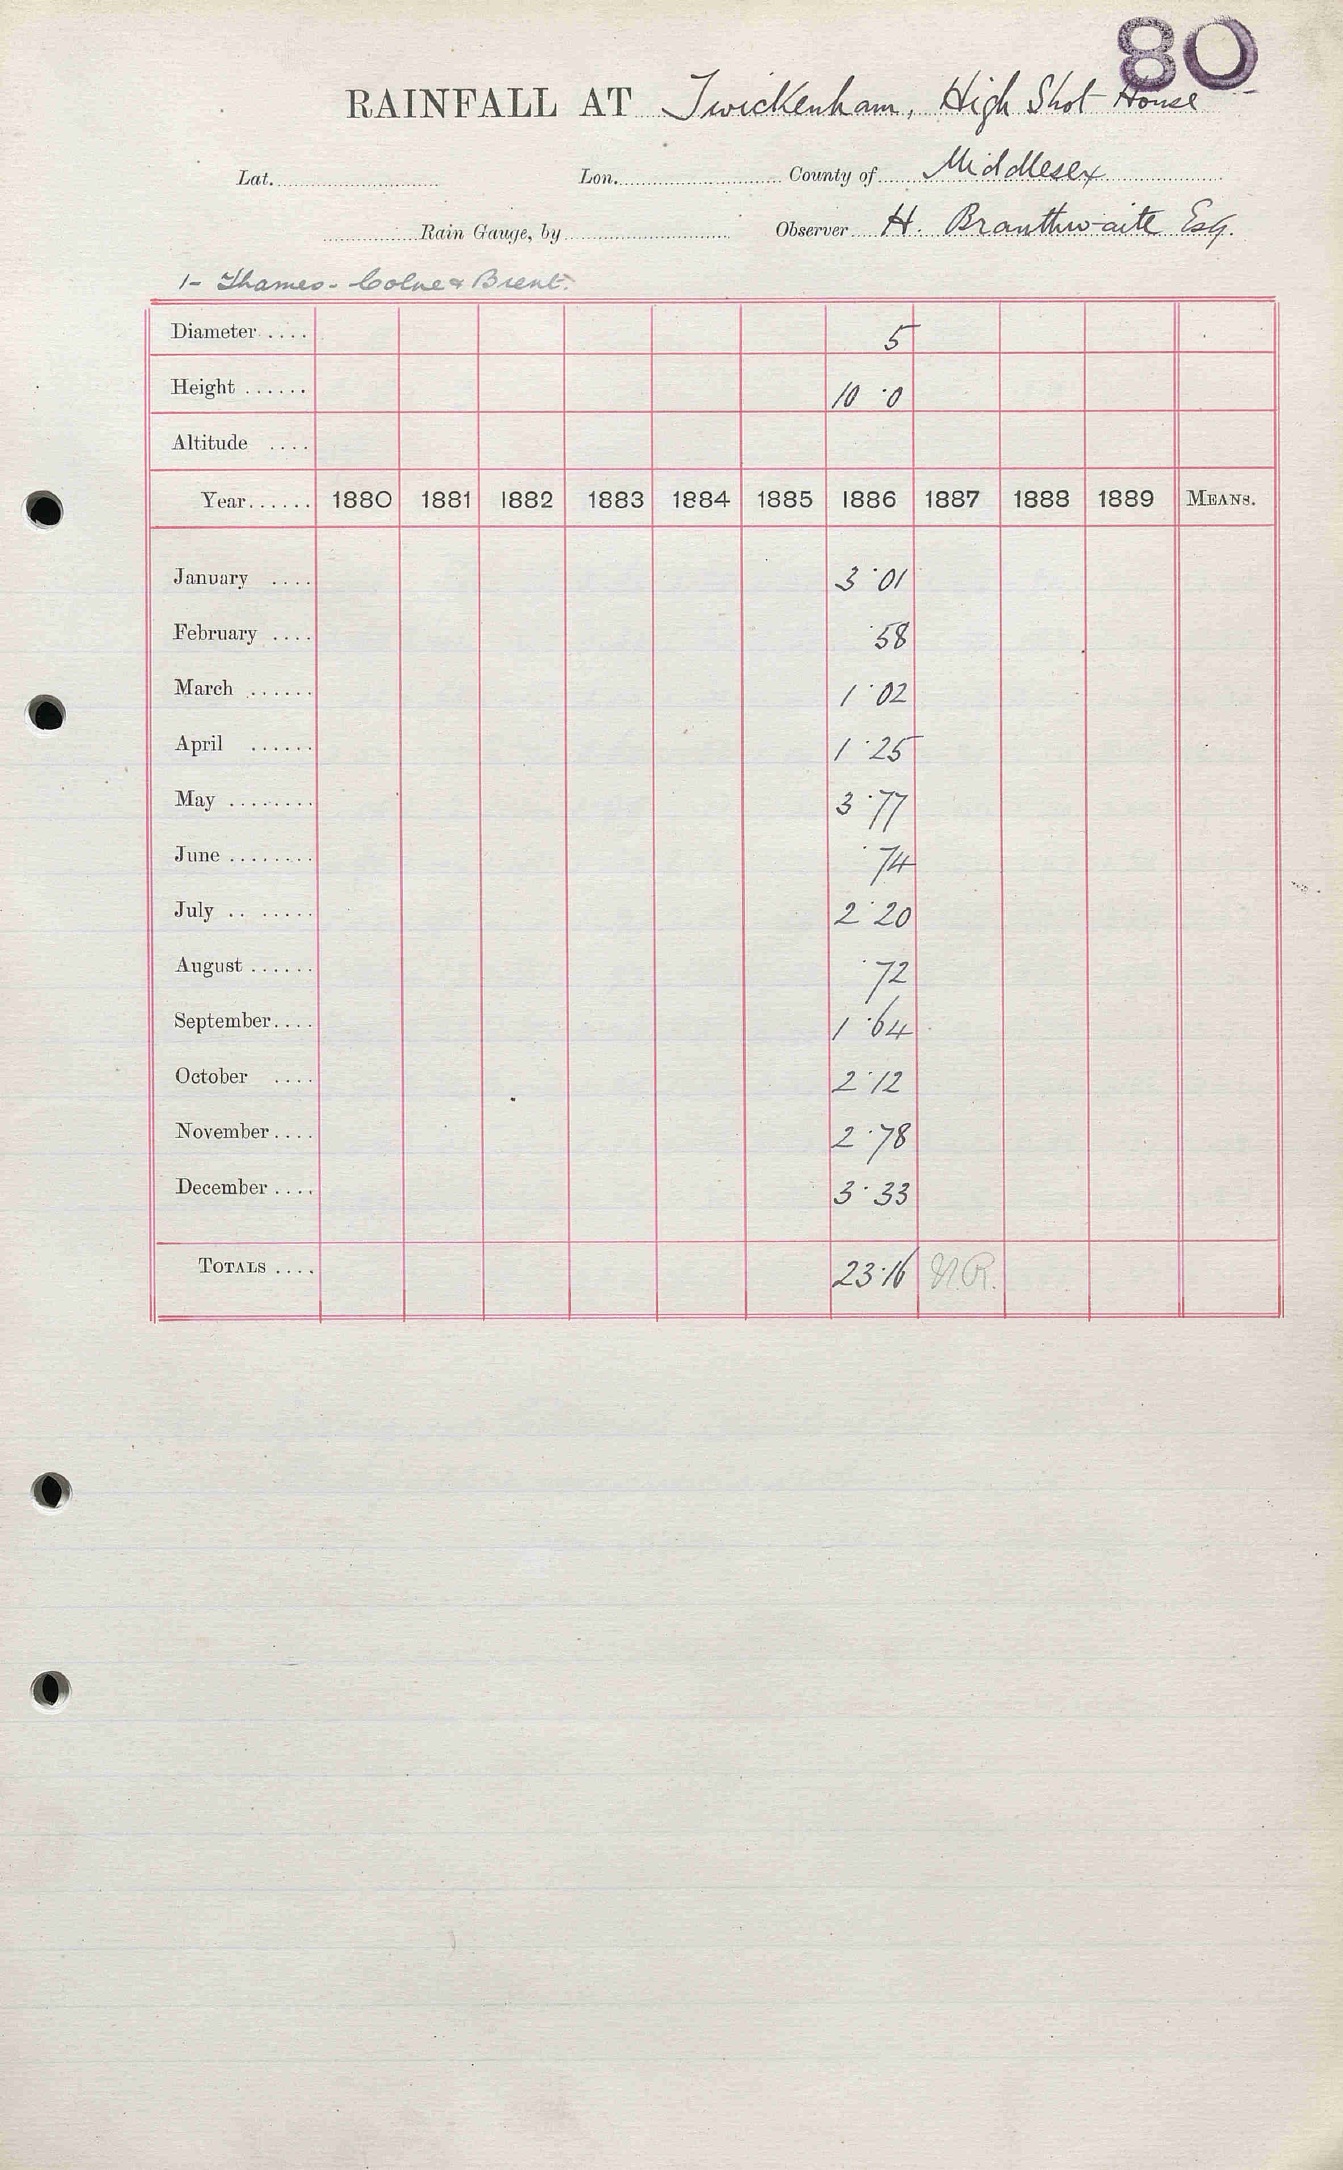 80
RAINFALL AT Twickenham, High Shot House
Lat. Lon. County of Middlesex
Rain Gauge, by Observer H. Branthwaite Esq.
1- Thames - Colne & Brent.
Diameter .... 5
Height ...... 10·0
Altitude ....
Year...... 1880 1881 1882 1883 1884 1885 1886 1887 1888 1889 MEANS.
January .... 3·01
February .... ·58
March ...... 1·02
April ...... 1·25
May ........ 3·77
June ........ ·74
July .. ..... 2·20
August ...... ·72
September.... 1·64
October .... 2·12
November.... 2·78
December.... 3·33
TOTALS .... 23·16 N.R.